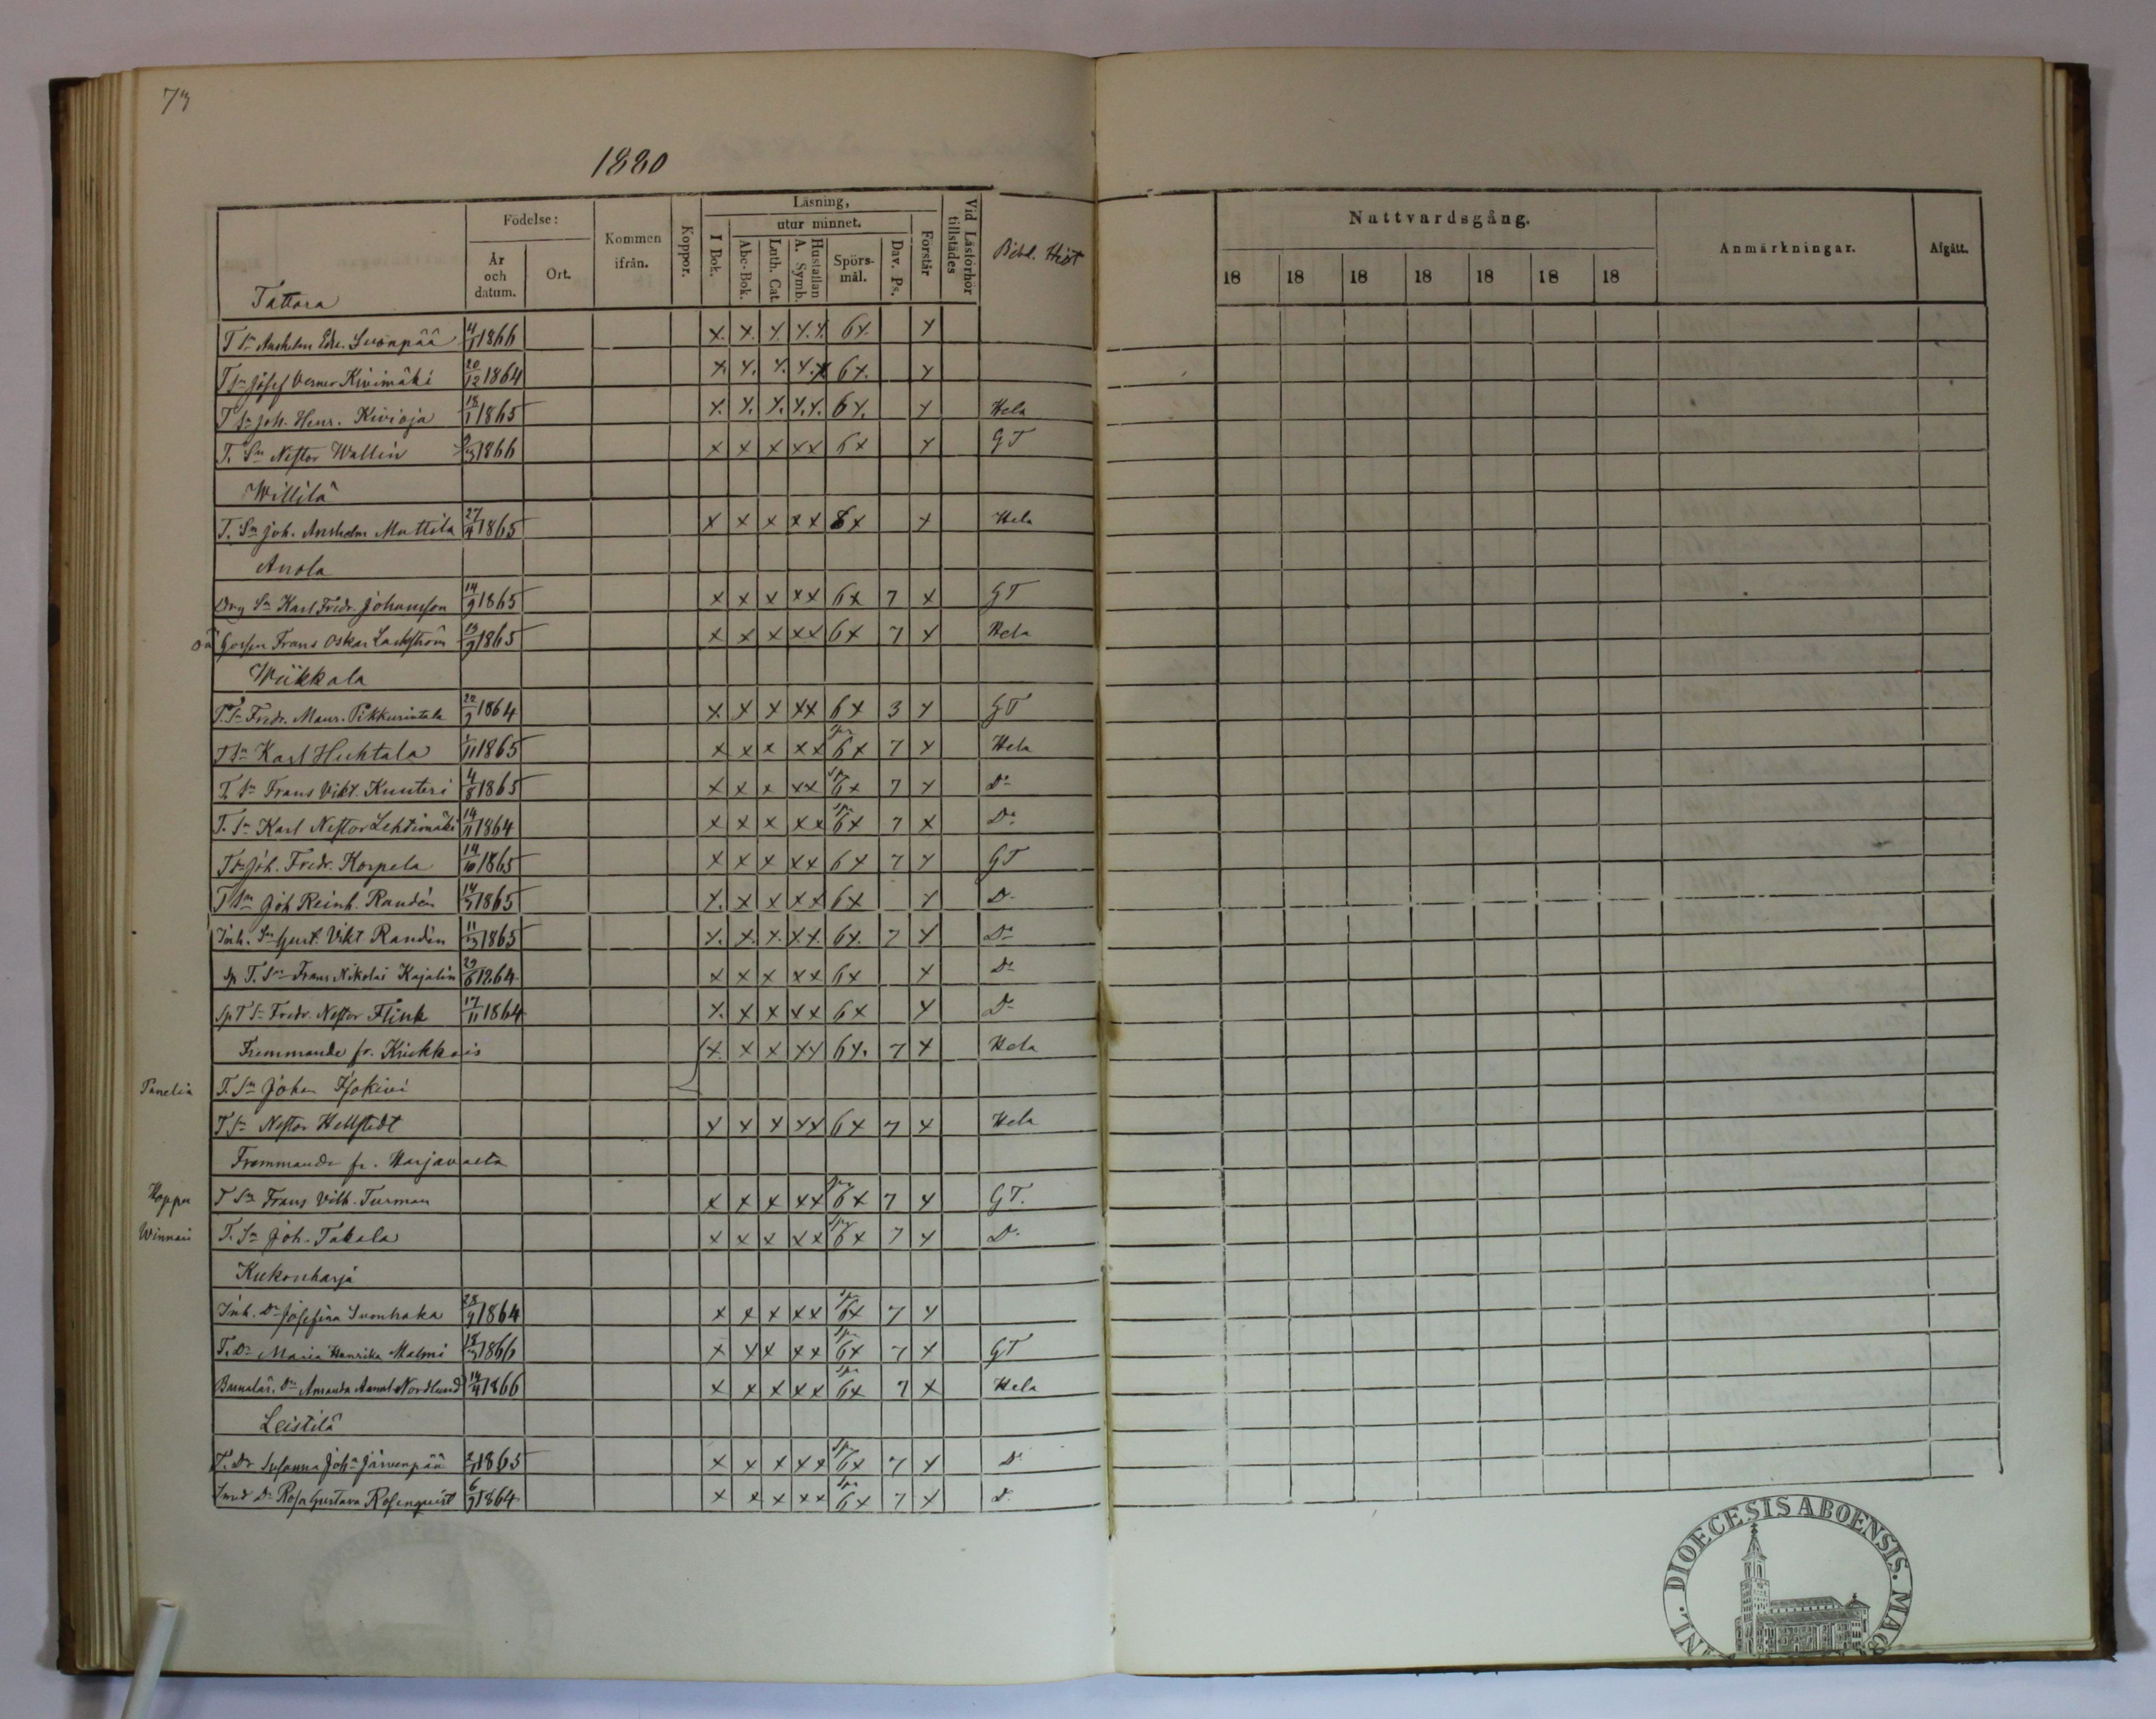 73
1880
Födelse:
Läsning,
utur minnet.
År och datum.
Ort.
Kommen ifrån.
Koppor.
I Bok.
Abc-Bok.
Luth. Cat.
A. Symb.
Hustaflan
Spörs-mål.
Dav. Ps.
Förstår
Vid Läsförhör tillstädes
Bibl. Hist
Nattvardsgång.
18 18 18 18 18 18 18
Anmärkningar.
Afgått.
Tattara
T Sn Anshelm Edv. Suonpää 1866 x. x. x. x.x. 6x. x
T Sn Josef Verner Kivimäki 20/12 1864 x. x. x. x.x 6x. x
T Sn Joh. Henr. Kivioja 18/1 1865 x. x. x. x.x. 6x. x Hela
T. Sn Nestor Wallin 1866 x x x xx 6x x GT
Willilä
T. Sn Joh. Anshelm Mattila 1865 x x x xx 6x x Hela
Anola
Drg Sn Karl Fredr. Johansson 14/9 1865 x x x xx 6x 7 x GT
Frans Oskar Lackström 1865 x x x xx 6x 7 x Hela
Wiikkala
T. Sn Fredr. Maur. Pikkurintala 1864 x x x xx 6x 3 x GT
T Sn Karl Huhtala 1/11 1865 x x x xx 6x 7 x Hela
T. Sn Frans Vikt. Kunteri 4/8 1865 x x x xx 6x 7 x Do
T. Sn Karl Nestor Lehtimäki 14/11 1864 x x x xx 6x 7 x Do
T Sn Joh. Fredr. Korpela 14/10 1865 x x x xx 6x 7 x GT
T Sn Joh Reinh. Randén 1865 x. x x xx 6x x D.
Inh. Sn Gust. Vikt Randén 1865 x. x. x. xx. 6x. 7 x Do
Sp T. Sn Frans Nikolai Kajalin 29/6 1864 x x x xx 6x x Do
Sp T Sn Fredr. Nestor Flink 17/11 1864 x. x x xx 6x x Do
Fremmande fr. Kiukkais x. x x xx 6x. 7 x Hela
Panelia T. Sn Johan Isokivi
T Sn Nestor Hellstedt x x x xx 6x 7 x Hela
Frammande fr. Harjavalta
T Sn Frans Vilh. Turman x x x xx 6x 7 x GT.
T. Sn Joh. Takala x x x xx 6x 7 x D.
Kukonharja
Inh. Dr Josefina Suonhaka 28/9 1864 x x x xx 6x 7 x
T. Dr Maria Henrika Malmi 1866 x x x xx 6x 7 x GT
Amanda Nordlund 14/4 1866 x x x xx 6x 7 x Hela
Leistilä
T. Dr Susanna Joha Järvenpää 1865 x x x xx 6x 7 x D
Dr Rosa Gustava Rosenquist 1864 x x x xx 6x 7 x D.
DIOECESIS ABOENSIS. MAG